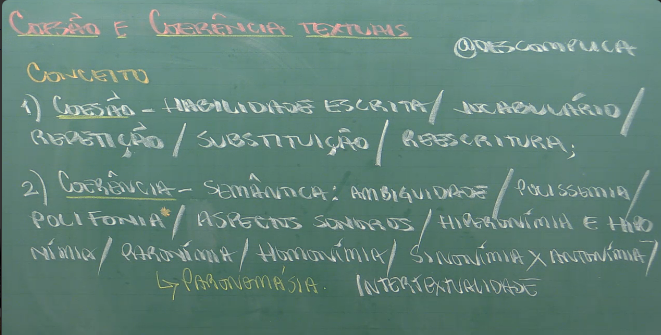 COESÃO E COERÊNCIA TEXTUAIS
@DESCOMPLICA
CONCEITO
1) COESÃO - HABILIDADE ESCRITA / VOCABULÁRIO /
REPETIÇÃO / SUBSTITUIÇÃO / REESCRITURA;
2) COERÊNCIA - SEMÂNTICA: AMBIGUIDADE / POLISSEMIA /
POLIFONIA* / ASPECTOS SONOROS / HIPERONÍMIA E HIPO
NÍMIA / PARONÍMIA / HOMONÍMIA / SINONÍMIA X ANTONÍMIA /
↳ PARONOMÁSIA. INTERTEXTUALIDADE